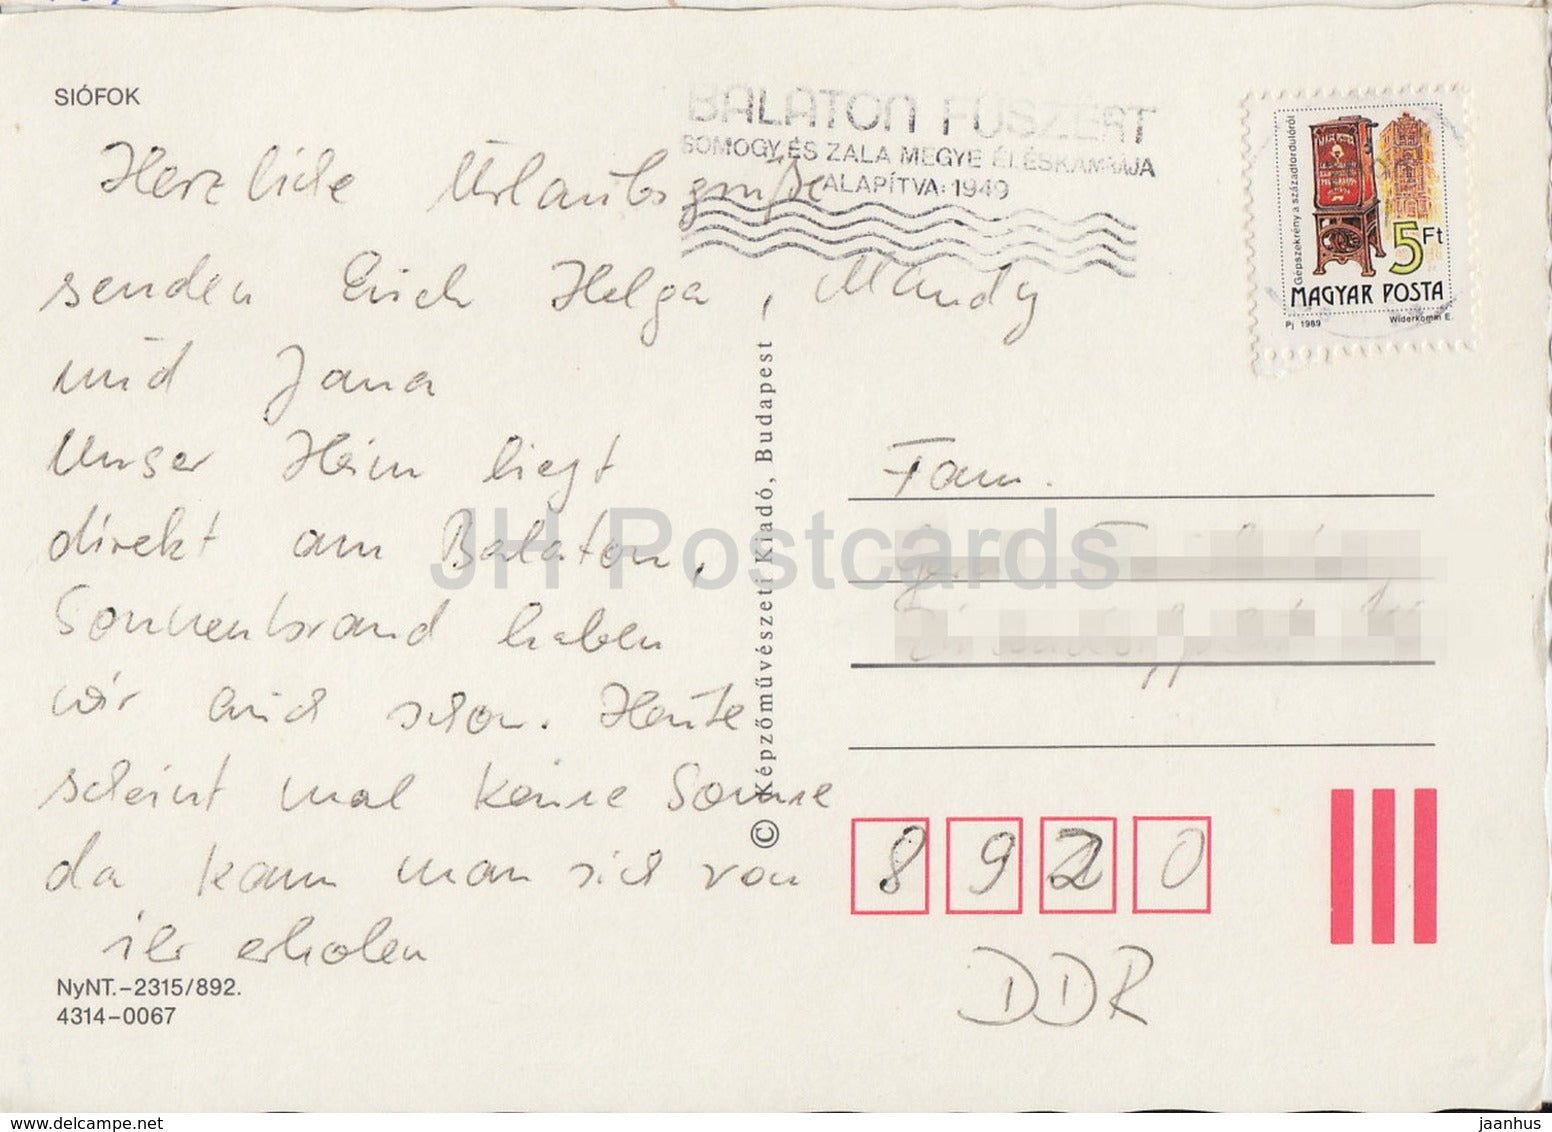 SIÓFOK
BALATON FŰSZÉRT
SOMOGY ÉS ZALA MEGYE ÉLÉSKAMRÁJA
ALAPÍTVA: 1949
Gépszekrény a századfordulóról
5Ft
MAGYAR POSTA
Pj 1989 Widerkomm E.
Herzliche Urlaubsgrüße
senden Erich Helga, Mandy
und Jana
Unser Heim liegt
direkt am Balaton,
Sonnenbrand haben
wir auch schon. Heute
scheint mal keine Sonne
da kann man sich von
ihr erholen
© Képzőművészeti Kiadó, Budapest
Fam.
8920
DDR
NyNT.-2315/892.
4314-0067
JH Postcards
www.delcampe.net
jaanhus